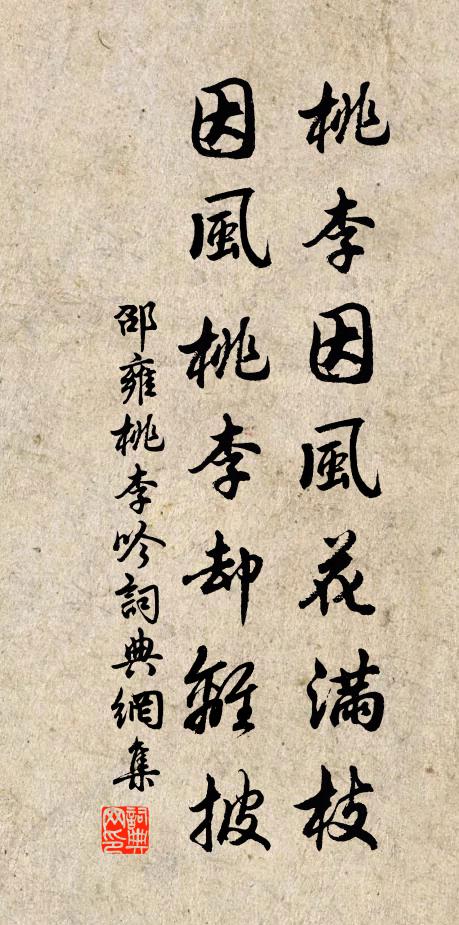 桃李因風花滿枝
因風桃李却離披
邵雍桃李吟詞典網集
詞典网印